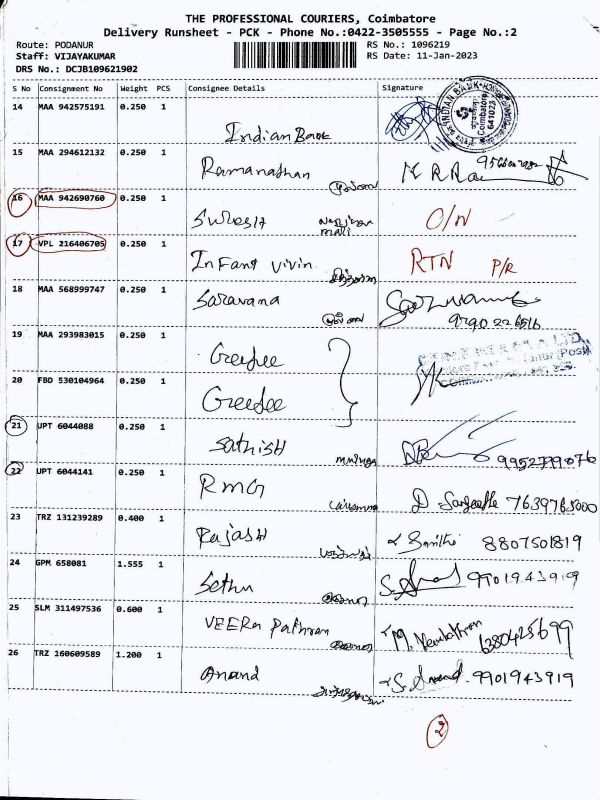 THE PROFESSIONAL COURIERS, Coimbatore
Delivery Runsheet - PCK - Phone No.:0422-3505555 - Page No.:2
Route: PODANUR RS No.: 1096219
Staff: VIJAYAKUMAR RS Date: 11-Jan-2023
DRS No.: DCJB109621902
S No Consignment No Weight PCS Consignee Details Signature
14 MAA 942575191 0.250 1 Indian Bank
INDIAN BANK Coimbatore 641023
15 MAA 294612132 0.250 1 Ramanathan
16 MAA 942690760 0.250 1 O/N
17 VPL 216406705 0.250 1 Infant vivin RTN P/R
18 MAA 568999747 0.250 1 Saravana
9790226516
19 MAA 293983015 0.250 1
20 FBD 530104964 0.250 1
21 UPT 6044088 0.250 1 Sathish 9952799076
22 UPT 6044141 0.250 1 RMG 7639765000
23 TRZ 131239289 0.400 1 Rajash 8807501819
24 GPM 658081 1.555 1 Sethu 9901943919
25 SLM 311497536 0.600 1 VEERA Pathran 6380425699
26 TRZ 160609589 1.200 1 Anand S. Anand 9901943919
2